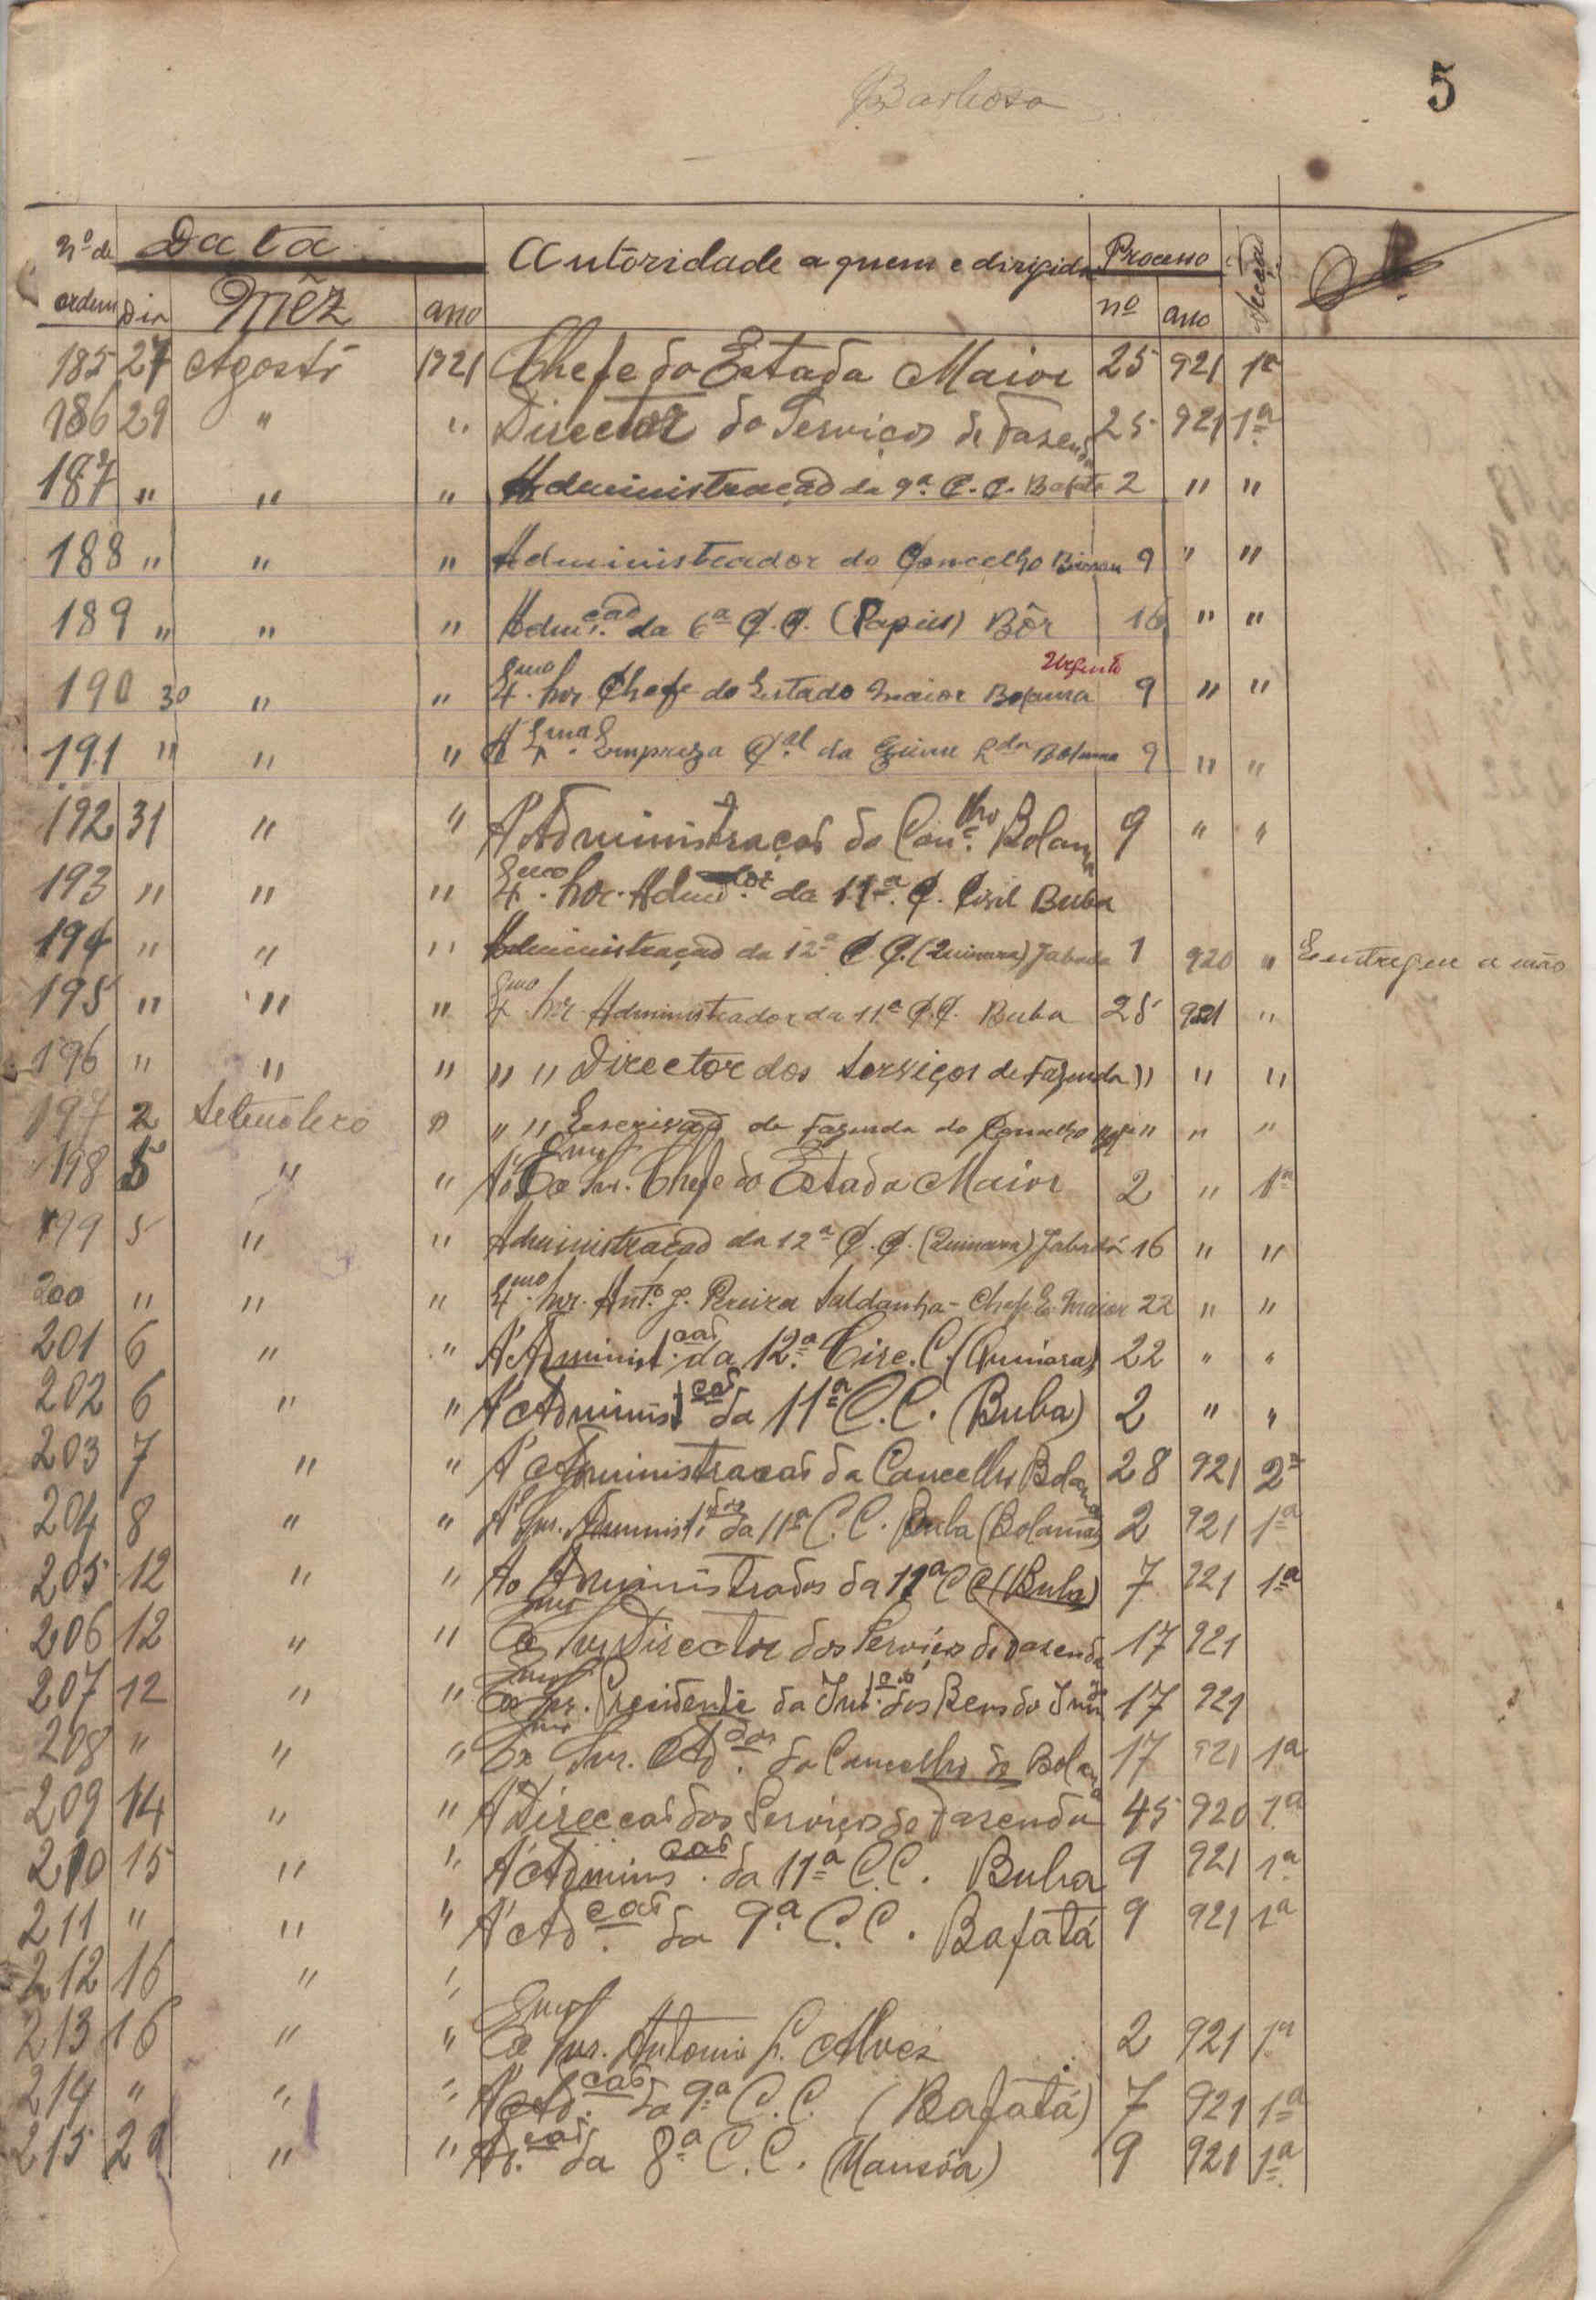 Barbosa
5
Nº de ordem Data Autoridade a quem é dirigida Processo Secção
Dia Mêz ano nº ano
185 27 Agosto 1921 Chefe do Estado Maior 25 921 1ª
186 29 " " Director do Serviços de Fazenda 25 921 1ª
187 " " " Administração da 9ª C. C. Bafatá 2 " "
188 " " " Administrador do Concelho Bissau 9 " "
189 " " " Adm.ção da 6ª C. C. (Papeis) Bôr 16 " "
Urgente
190 30 " " Exmo. Snr. Chefe do Estado Maior Bolama 9 " "
191 " " " Á Exma. Empreza C.al da Guiné L.da Bolama 9 " "
192 31 " " Á Administração do Con.lho Bolama 9 " "
193 " " " Exmo. Snr. Adm.dor da 11ª C. Civil Buba
194 " " " Administração da 12ª C. C. (Quinara) Jabada 1 920 " Entregue a mão
195 " " " Exmo. Snr. Administrador da 11ª C. C. Buba 25 921 "
196 " " " " " Director dos Serviços de Fazenda " " "
197 2 Setembro " " " Escrivão de Fazenda do Concelho " " "
198 5 " " Ao Exmo Snr. Chefe do Estado Maior 2 " 1ª
199 5 " " Administração da 12ª C. C. (Quinara) Jabadá 16 " "
200 " " " Exmo. Snr. Antº. J. Pereira Saldanha - Chefe E. Maior 22 " "
201 6 " " Á Administ.ção da 12ª Circ. C. (Quinara) 22 " "
202 6 " " Á Administ.ção da 11ª C. C. (Buba) 2 " "
203 7 " " Á Administração da Concelho Bolama 28 921 2ª
204 8 " " Snr. Administ.dor da 11ª C. C. Buba (Bolama) 2 921 1ª
205 12 " " Ao Administrador da 11ª C C (Buba) 7 921 1ª
206 12 " " Exmo Snr Director dos Serviços de Fazenda 17 921
207 12 " " Exmo Snr. Presidente da Jut.ª dos Bens do 17 921
208 " " " Exmo Snr. Ad.dor do Concelho de Bolama 17 921 1ª
209 14 " " Á Direcção dos Serviços de Fazenda 45 920 1ª
210 15 " " Á Admins.ção da 11ª C. C. Buba 9 921 1ª
211 " " " Á Ad.ção da 9ª C. C. Bafatá 9 921 1ª
212 16 " "
213 16 " " Exmo Snr. Antonio S. Alves 2 921 1ª
214 " " " Á Ad.ção da 9ª C. C. (Bafatá) 7 921 1ª
215 29 " " Ad.ção da 8ª C. C. (Mansôa) 9 921 1ª